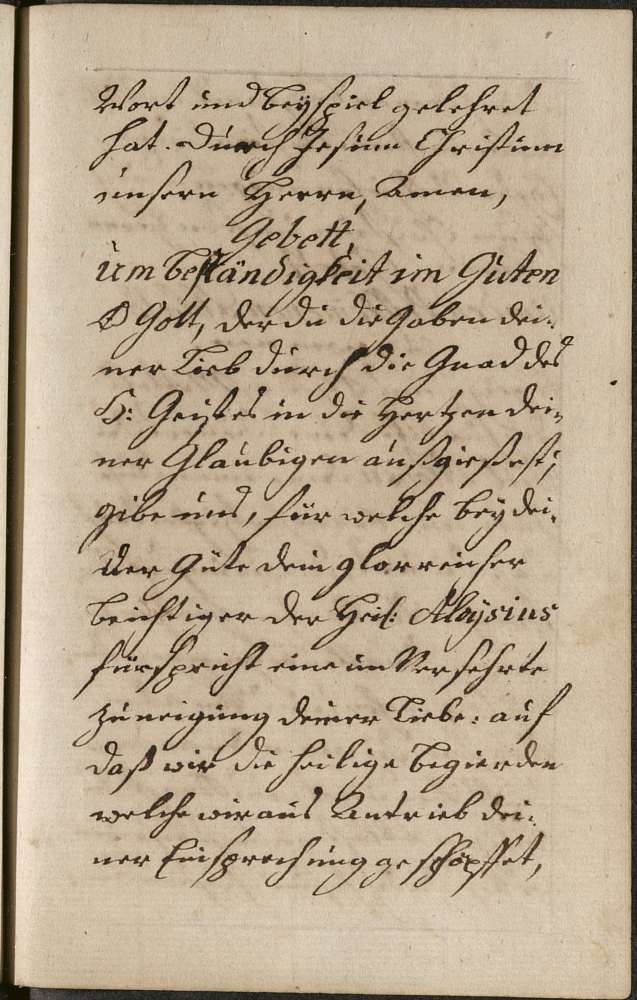 Wort und Beyspiel gelehret
hat. Durch Jesum Christum
unsern Herrn, Amen,
Gebett,
um Beständigkeit im Guten
O Gott, der du die Gaben dei-
ner Lieb durch die Gnad des
H: Geistes in die Hertzen dei-
ner Glaubigen außgießest,
gibe uns, für welche bey dei-
ner Güte dein glorreicher
Beichtiger der Heil: Aloysius
fürspricht eine unversehrte
Zuneigung deiner Liebe: auf
daß wir die heilige Begierden
welche wir aus Antrieb dei-
ner Einsprechung geschöpffet,